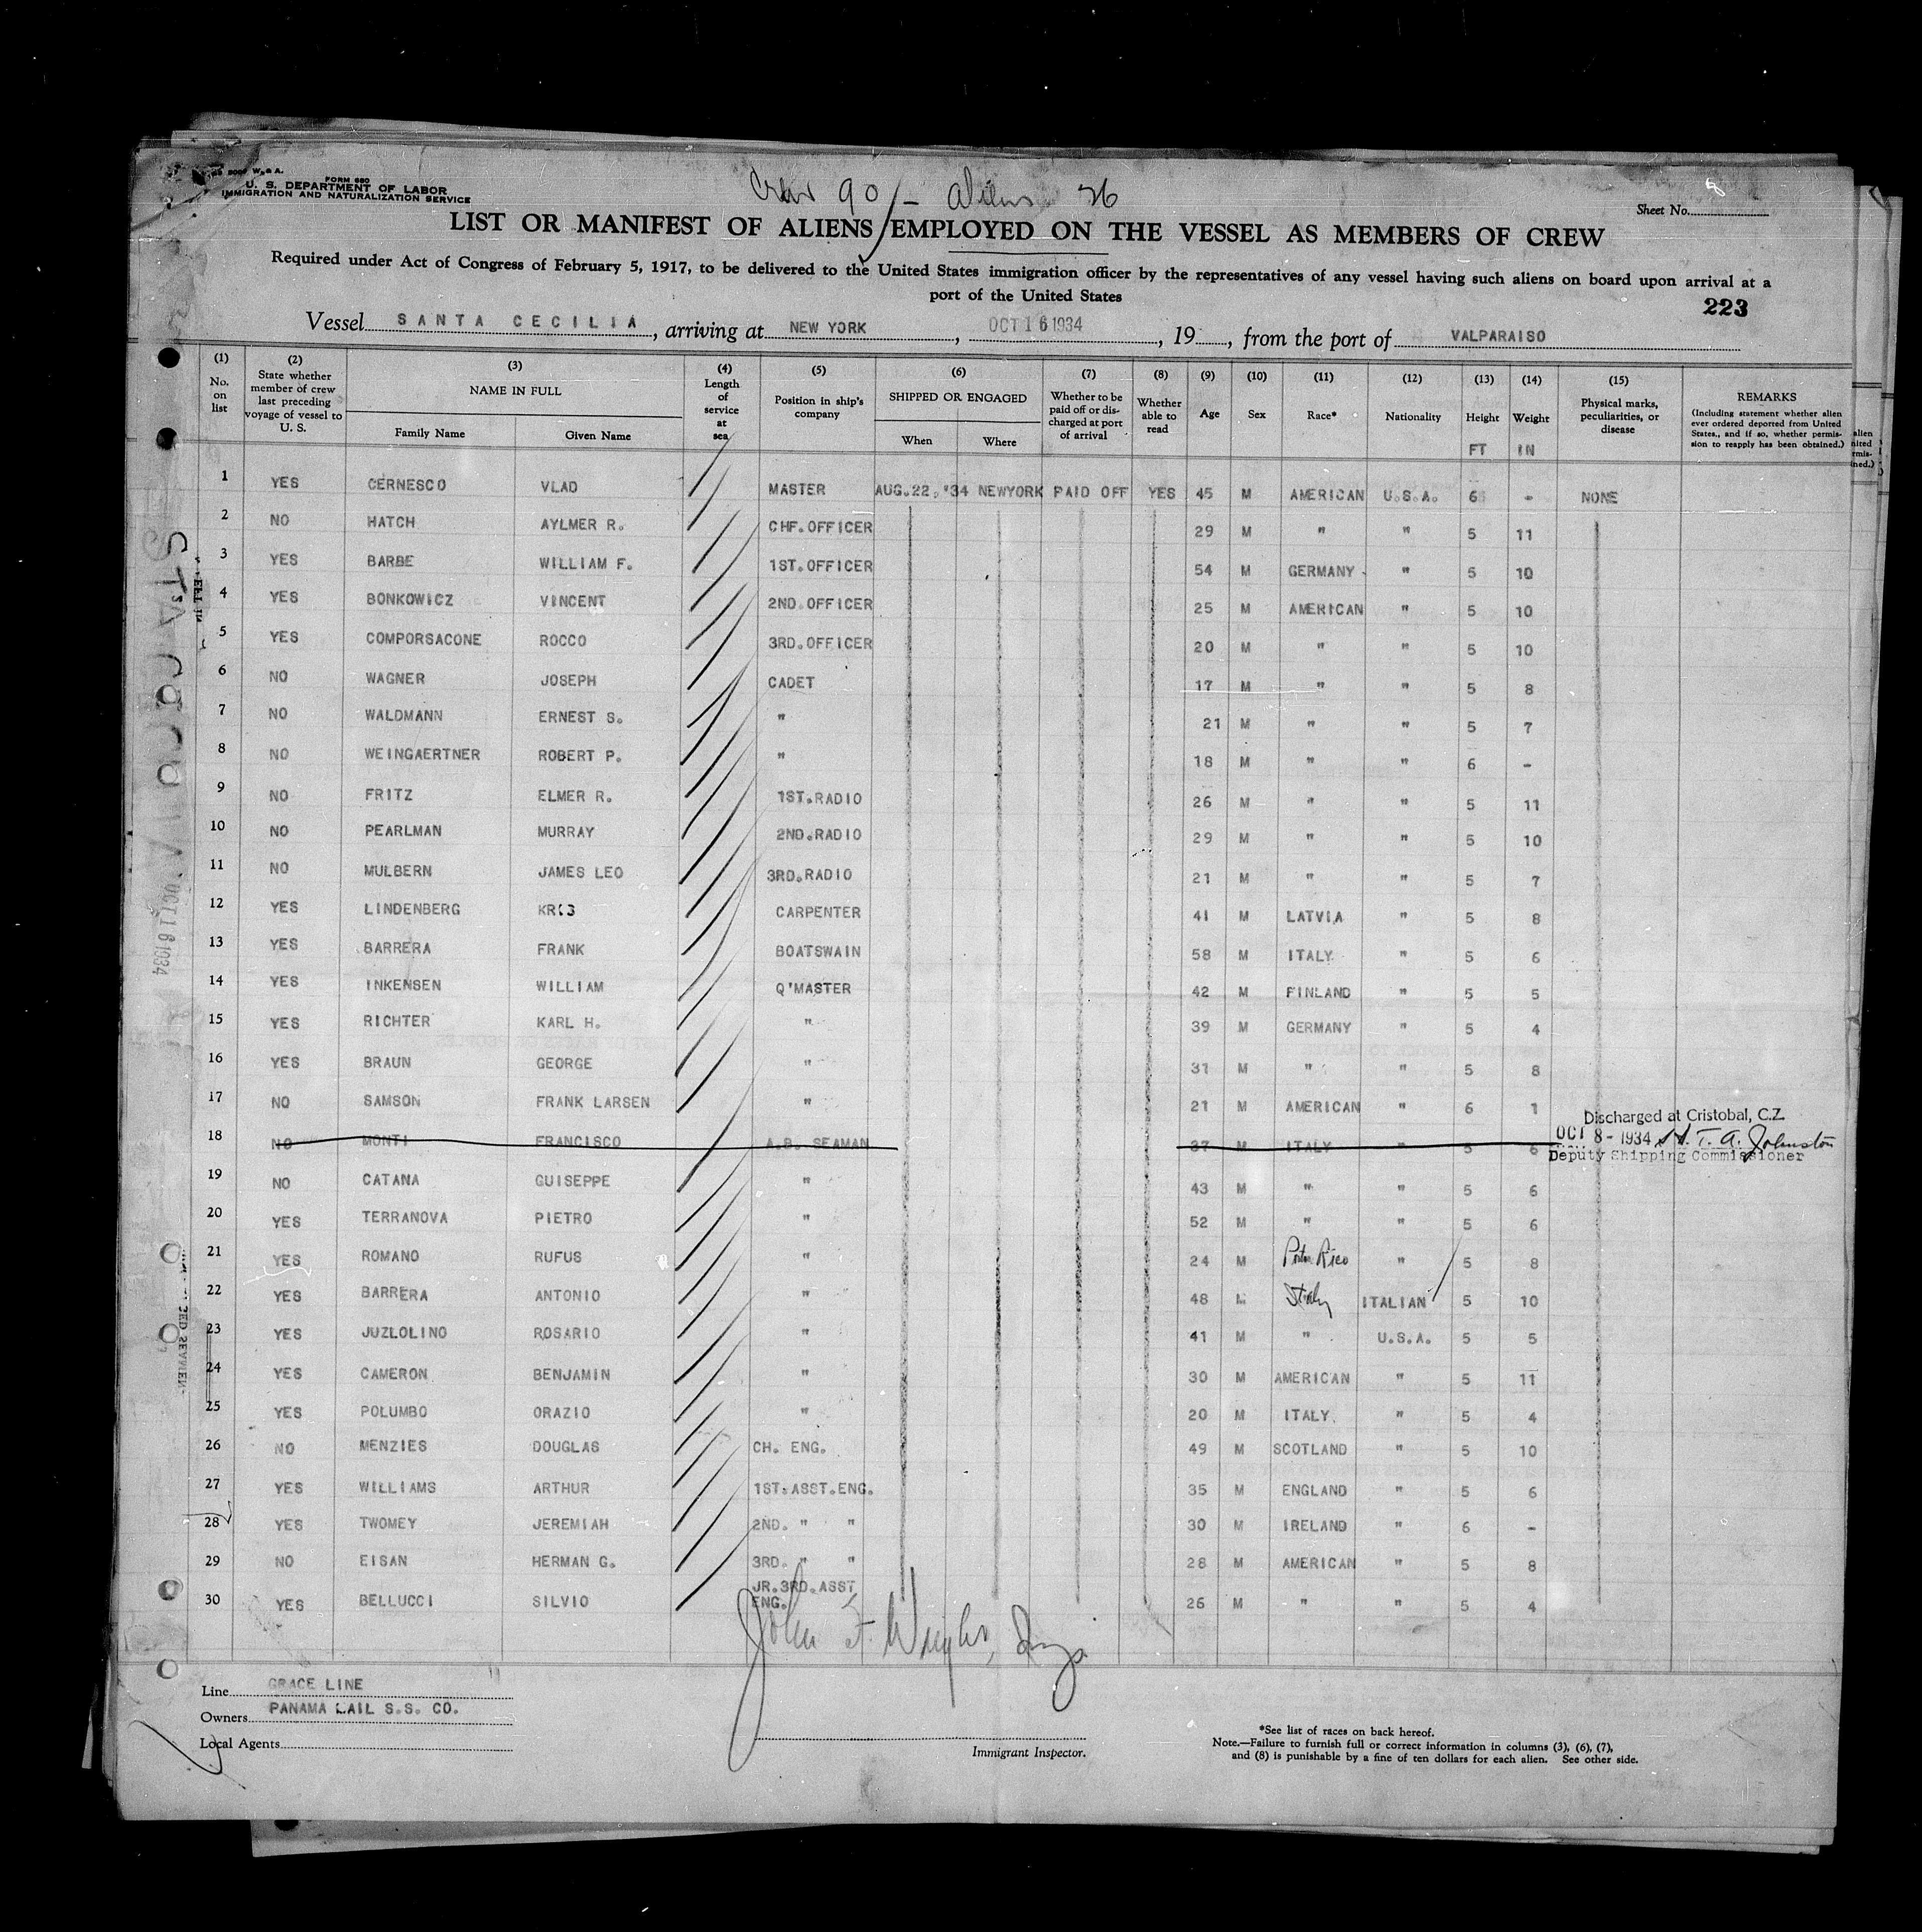 FORM 680
U. S. DEPARTMENT OF LABOR
IMMIGRATION AND NATURALIZATION SERVICE
Crew 90 / - aliens 26
Sheet No.
LIST OR MANIFEST OF ALIENS EMPLOYED ON THE VESSEL AS MEMBERS OF CREW
Required under Act of Congress of February 5, 1917, to be delivered to the United States immigration officer by the representatives of any vessel having such aliens on board upon arrival at a
port of the United States
223
Vessel SANTA CECILIA, arriving at NEW YORK, OCT 16 1934, 19, from the port of VALPARAISO
(1) No. on list (2) State whether member of crew last preceding voyage of vessel to U. S. (3) NAME IN FULL Family Name Given Name (4) Length of service at sea (5) Position in ship's company (6) SHIPPED OR ENGAGED When Where (7) Whether to be paid off or discharged at port of arrival (8) Whether able to read (9) Age (10) Sex (11) Race* (12) Nationality (13) Height (14) Weight (15) Physical marks, peculiarities, or disease REMARKS (Including statement whether alien ever ordered deported from United States., and if so, whether permission to reapply has been obtained.)
FT IN
1 YES CERNESCO VLAD MASTER AUG.22.'34 NEWYORK PAID OFF YES 45 M AMERICAN U.S.A. 6 - NONE
2 NO HATCH AYLMER R. CHF.OFFICER 29 M " " 5 11
3 YES BARBE WILLIAM F. 1ST.OFFICER 54 M GERMANY " 5 10
4 YES BONKOWICZ VINCENT 2ND.OFFICER 25 M AMERICAN " 5 10
5 YES COMPORSACONE ROCCO 3RD.OFFICER 20 M " " 5 10
6 NO WAGNER JOSEPH CADET 17 M " " 5 8
7 NO WALDMANN ERNEST S. " 21 M " " 5 7
8 NO WEINGAERTNER ROBERT P. " 18 M " " 6 -
9 NO FRITZ ELMER R. 1ST.RADIO 26 M " " 5 11
10 NO PEARLMAN MURRAY 2ND.RADIO 29 M " " 5 10
11 NO MULBERN JAMES LEO 3RD.RADIO 21 M " " 5 7
12 YES LINDENBERG KRIS CARPENTER 41 M LATVIA " 5 8
13 YES BARRERA FRANK BOATSWAIN 58 M ITALY " 5 6
14 YES INKENSEN WILLIAM Q'MASTER 42 M FINLAND " 5 5
15 YES RICHTER KARL H. " 39 M GERMANY " 5 4
16 YES BRAUN GEORGE " 31 M " " 5 8
17 NO SAMSON FRANK LARSEN " 21 M AMERICAN " 6 1
18 NO MONTI FRANCISCO A.B. SEAMAN 37 M ITALY " 5 6
Discharged at Cristobal, C.Z.
OCT 8 - 1934 H. T. A. Johnston
Deputy Shipping Commissioner
19 NO CATANA GUISEPPE " 43 M " " 5 6
20 YES TERRANOVA PIETRO " 52 M " " 5 6
21 YES ROMANO RUFUS " 24 M Porto Rico " 5 8
22 YES BARRERA ANTONIO " 48 M Italy ITALIAN 5 10
23 YES JUZLOLINO ROSARIO " 41 M " U.S.A. 5 5
24 YES CAMERON BENJAMIN " 30 M AMERICAN " 5 11
25 YES POLUMBO ORAZIO " 20 M ITALY " 5 4
26 NO MENZIES DOUGLAS CH. ENG. 49 M SCOTLAND " 5 10
27 YES WILLIAMS ARTHUR 1ST.ASST.ENG. 35 M ENGLAND " 5 6
28 YES TWOMEY JEREMIAH 2ND. " " 30 M IRELAND " 6 -
29 NO EISAN HERMAN G. 3RD. " " 28 M AMERICAN " 5 8
30 YES BELLUCCI SILVIO JR.3RD.ASST ENG. 26 M " " 5 4
John F. Wright, Insp.
Line GRACE LINE
Owners PANAMA LAIL S.S. CO.
Local Agents
Immigrant Inspector.
*See list of races on back hereof.
Note.—Failure to furnish full or correct information in columns (3), (6), (7),
and (8) is punishable by a fine of ten dollars for each alien. See other side.
OCT 16 1934